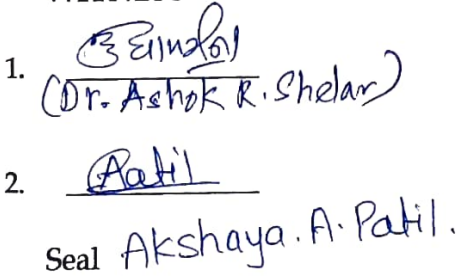 1.
(Dr. Ashok R. Shelar)
2. Patil
Seal Akshaya. A. Patil.